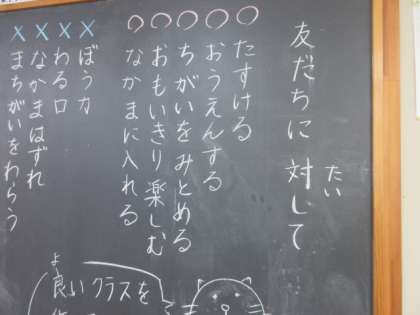 友だちに対して
たい
○たすける
○おうえんする
○ちがいをみとめる
○おもいきり楽しむ
○なかまに入れる
×ぼう力
×わる口
×なかまはずれ
×まちがいをわらう
よ
良いクラスを